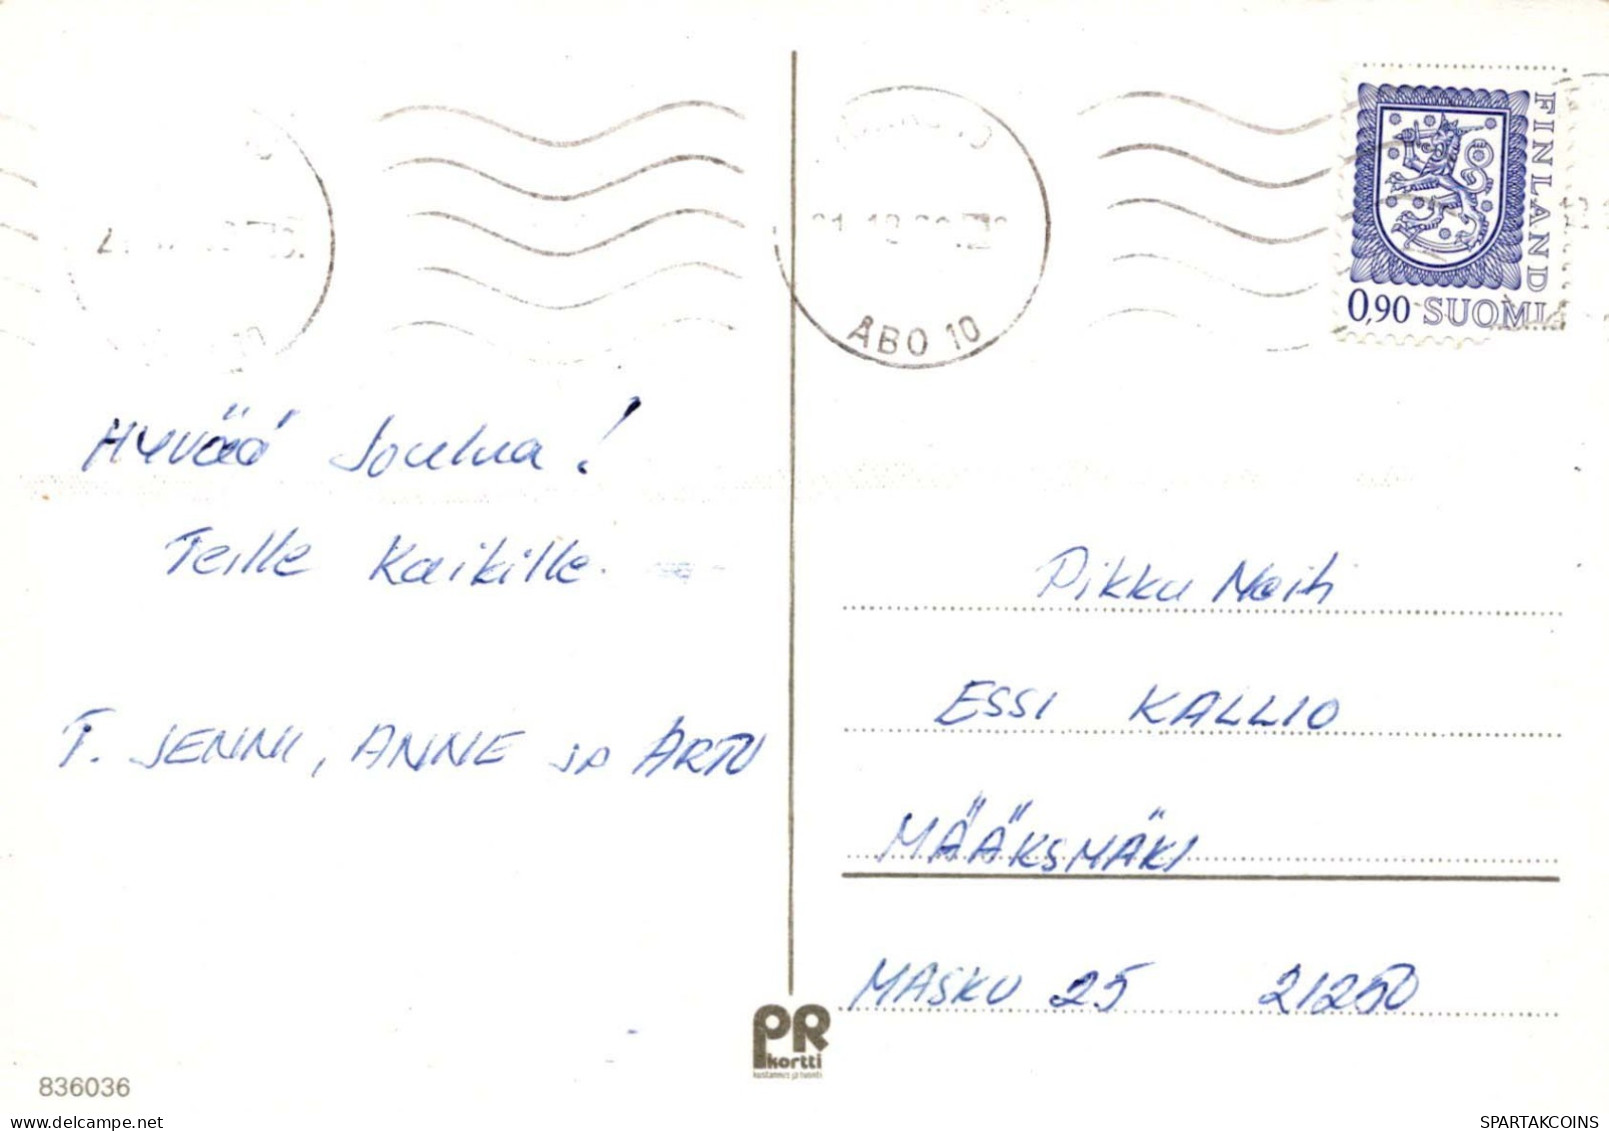 ÅBO 10
FINLAND
0,90 SUOMI
Hyvää Joulua!
Teille Kaikille.
T. JENNI, ANNE ja ARTO
Pikku Neiti
ESSI KALLIO
MÄÄKSMÄKI
MASKU 25 21250
PR
kortti
kustannus ja tuonti
836036
www.delcampe.net
SPARTAKCOINS